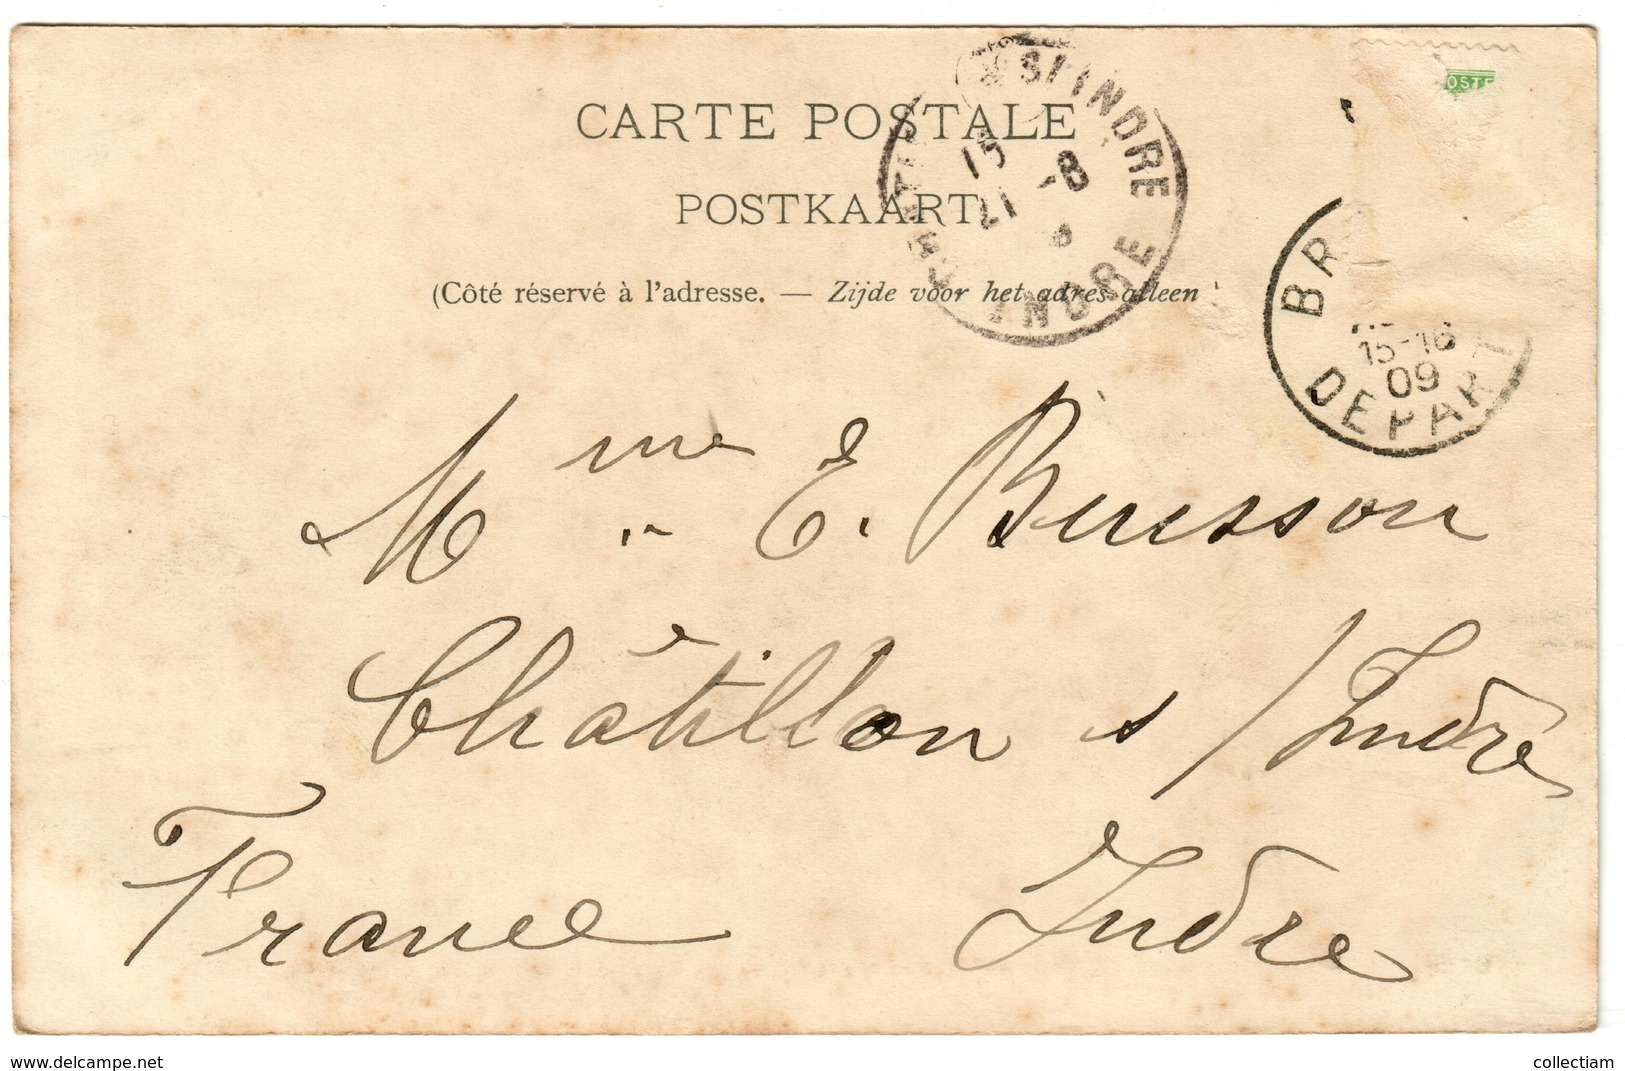 CARTE POSTALE
POSTKAART
(Côté réservé à l'adresse. — Zijde voor het adres alleen
S/INDRE
15 -8
INDRE
OSTE
BR
15-16
09
DEPART
Mme E. Buisson
Châtillon s/Indre
France Indre
www.delcampe.net
collectiam